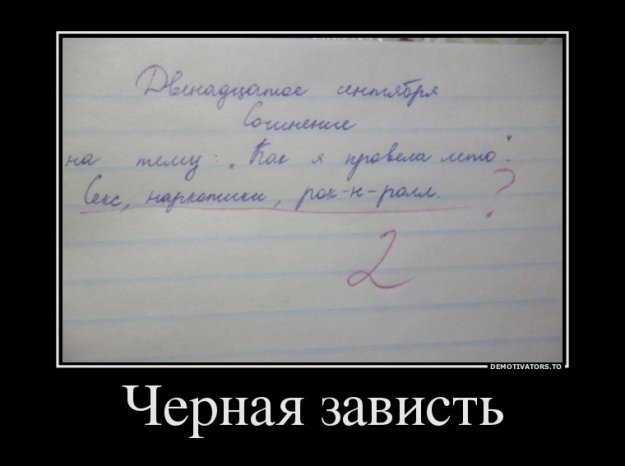 Двенадцатое сентября
Сочинение
на тему: „Как я провела лето".
Секс, наркотики, рок-н-ролл. ?
2
DEMOTIVATORS.TO
Черная зависть